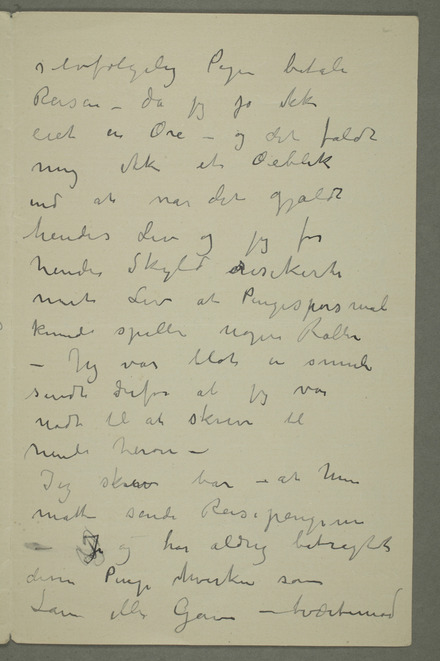 selvfølgelig Pejen betale
Reisen – da jeg jo ikke
eiet en Øre – og det faldt
mig ikke et Øieblik
ind at når det gjaldt
hendes Liv og jeg for
hendes Skyld risikerte
mit Liv at Pengespørsmål
kunde spille nogen Rolle
– Jeg var blot en smule
sendt derfor at jeg var
nødt til at skrive til
hende herom –
Jeg skrev bar – at hun
måtte sende Reisepengene
– Jeg og har aldrig betragtet
disse Penge hverken som
Lån eller Gave – tværtimod